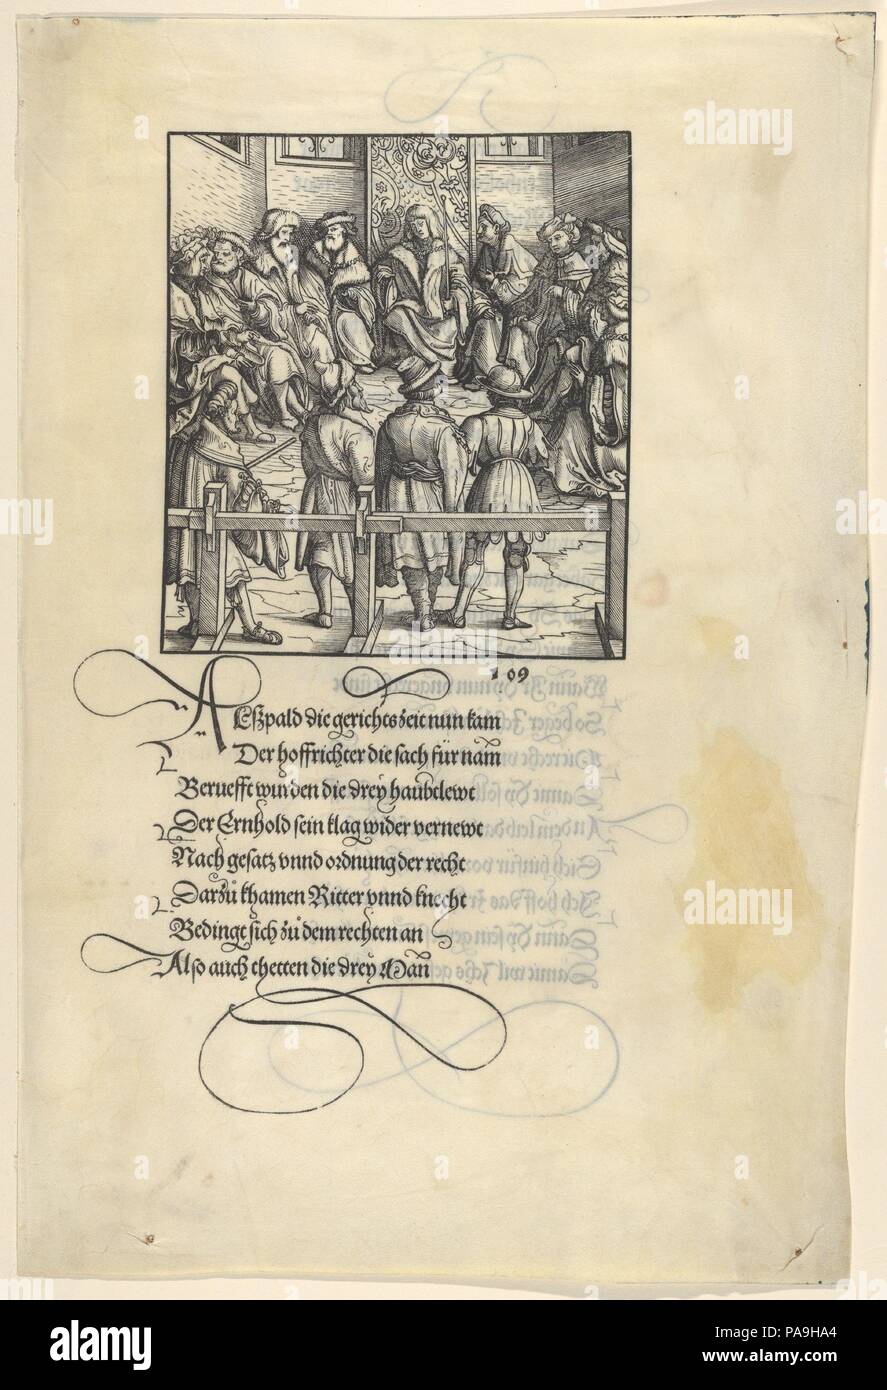 109
ALßpald die gerichts zeit nun kam
Der hoffrichter die sach für nam̄
Beruefft wurden die drey haubtlewt
Der Ernhold sein klag wider vernewt
Nach gesatz vnnd ordnung der recht
Darzů khamen Ritter vnnd knecht
Bedingt sich zů dem rechten an
Also auch thetten die drey Man̄
alamy
PA9HA4
www.alamy.com